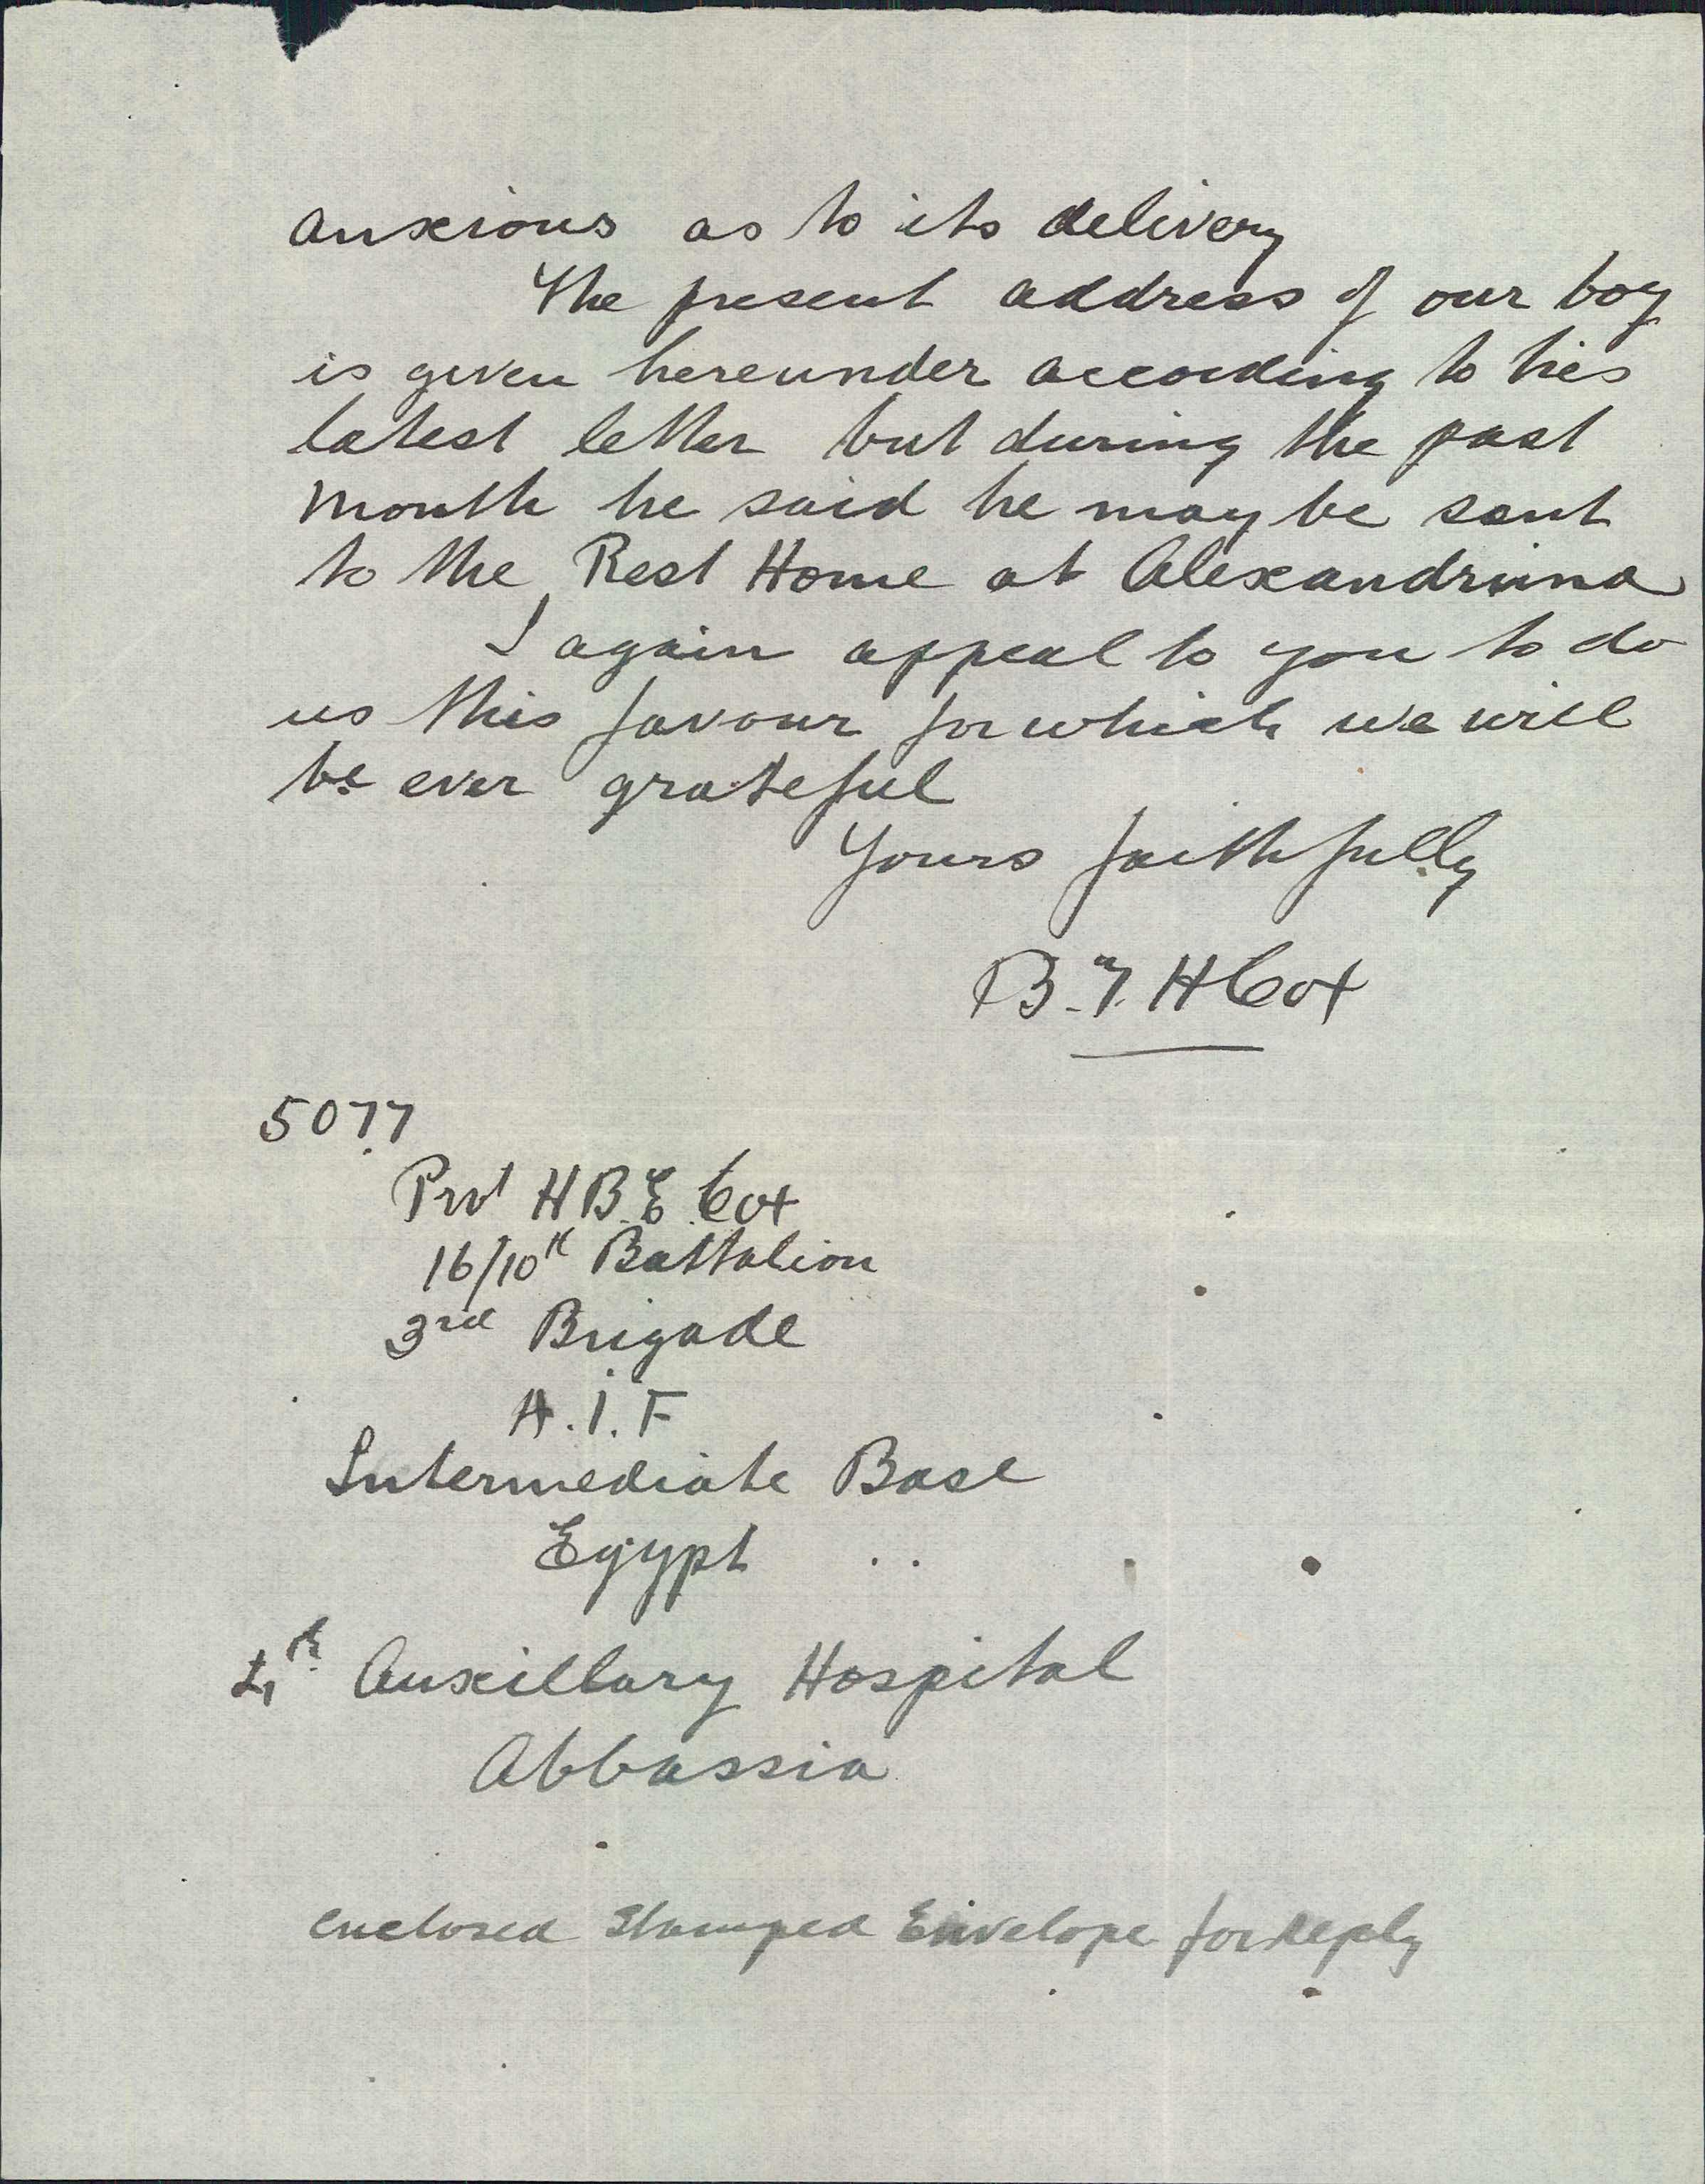 anxious as to its delivery
The present address of our boy
is given hereunder according to his
latest letter but during the past
month he said he may be sent
to the Rest Home at Alexandriina
I again appeal to you to do
us this favour for which we will
be ever grateful
Yours faithfully
B. H Cox
5077
Prvt H B E Cox
16/10th Battalion
3rd Brigade
A.I.F
Intermediate Base
Egypt
4th Auxillary Hospital
Abbassia
enclosed Stamped Envelope for Reply